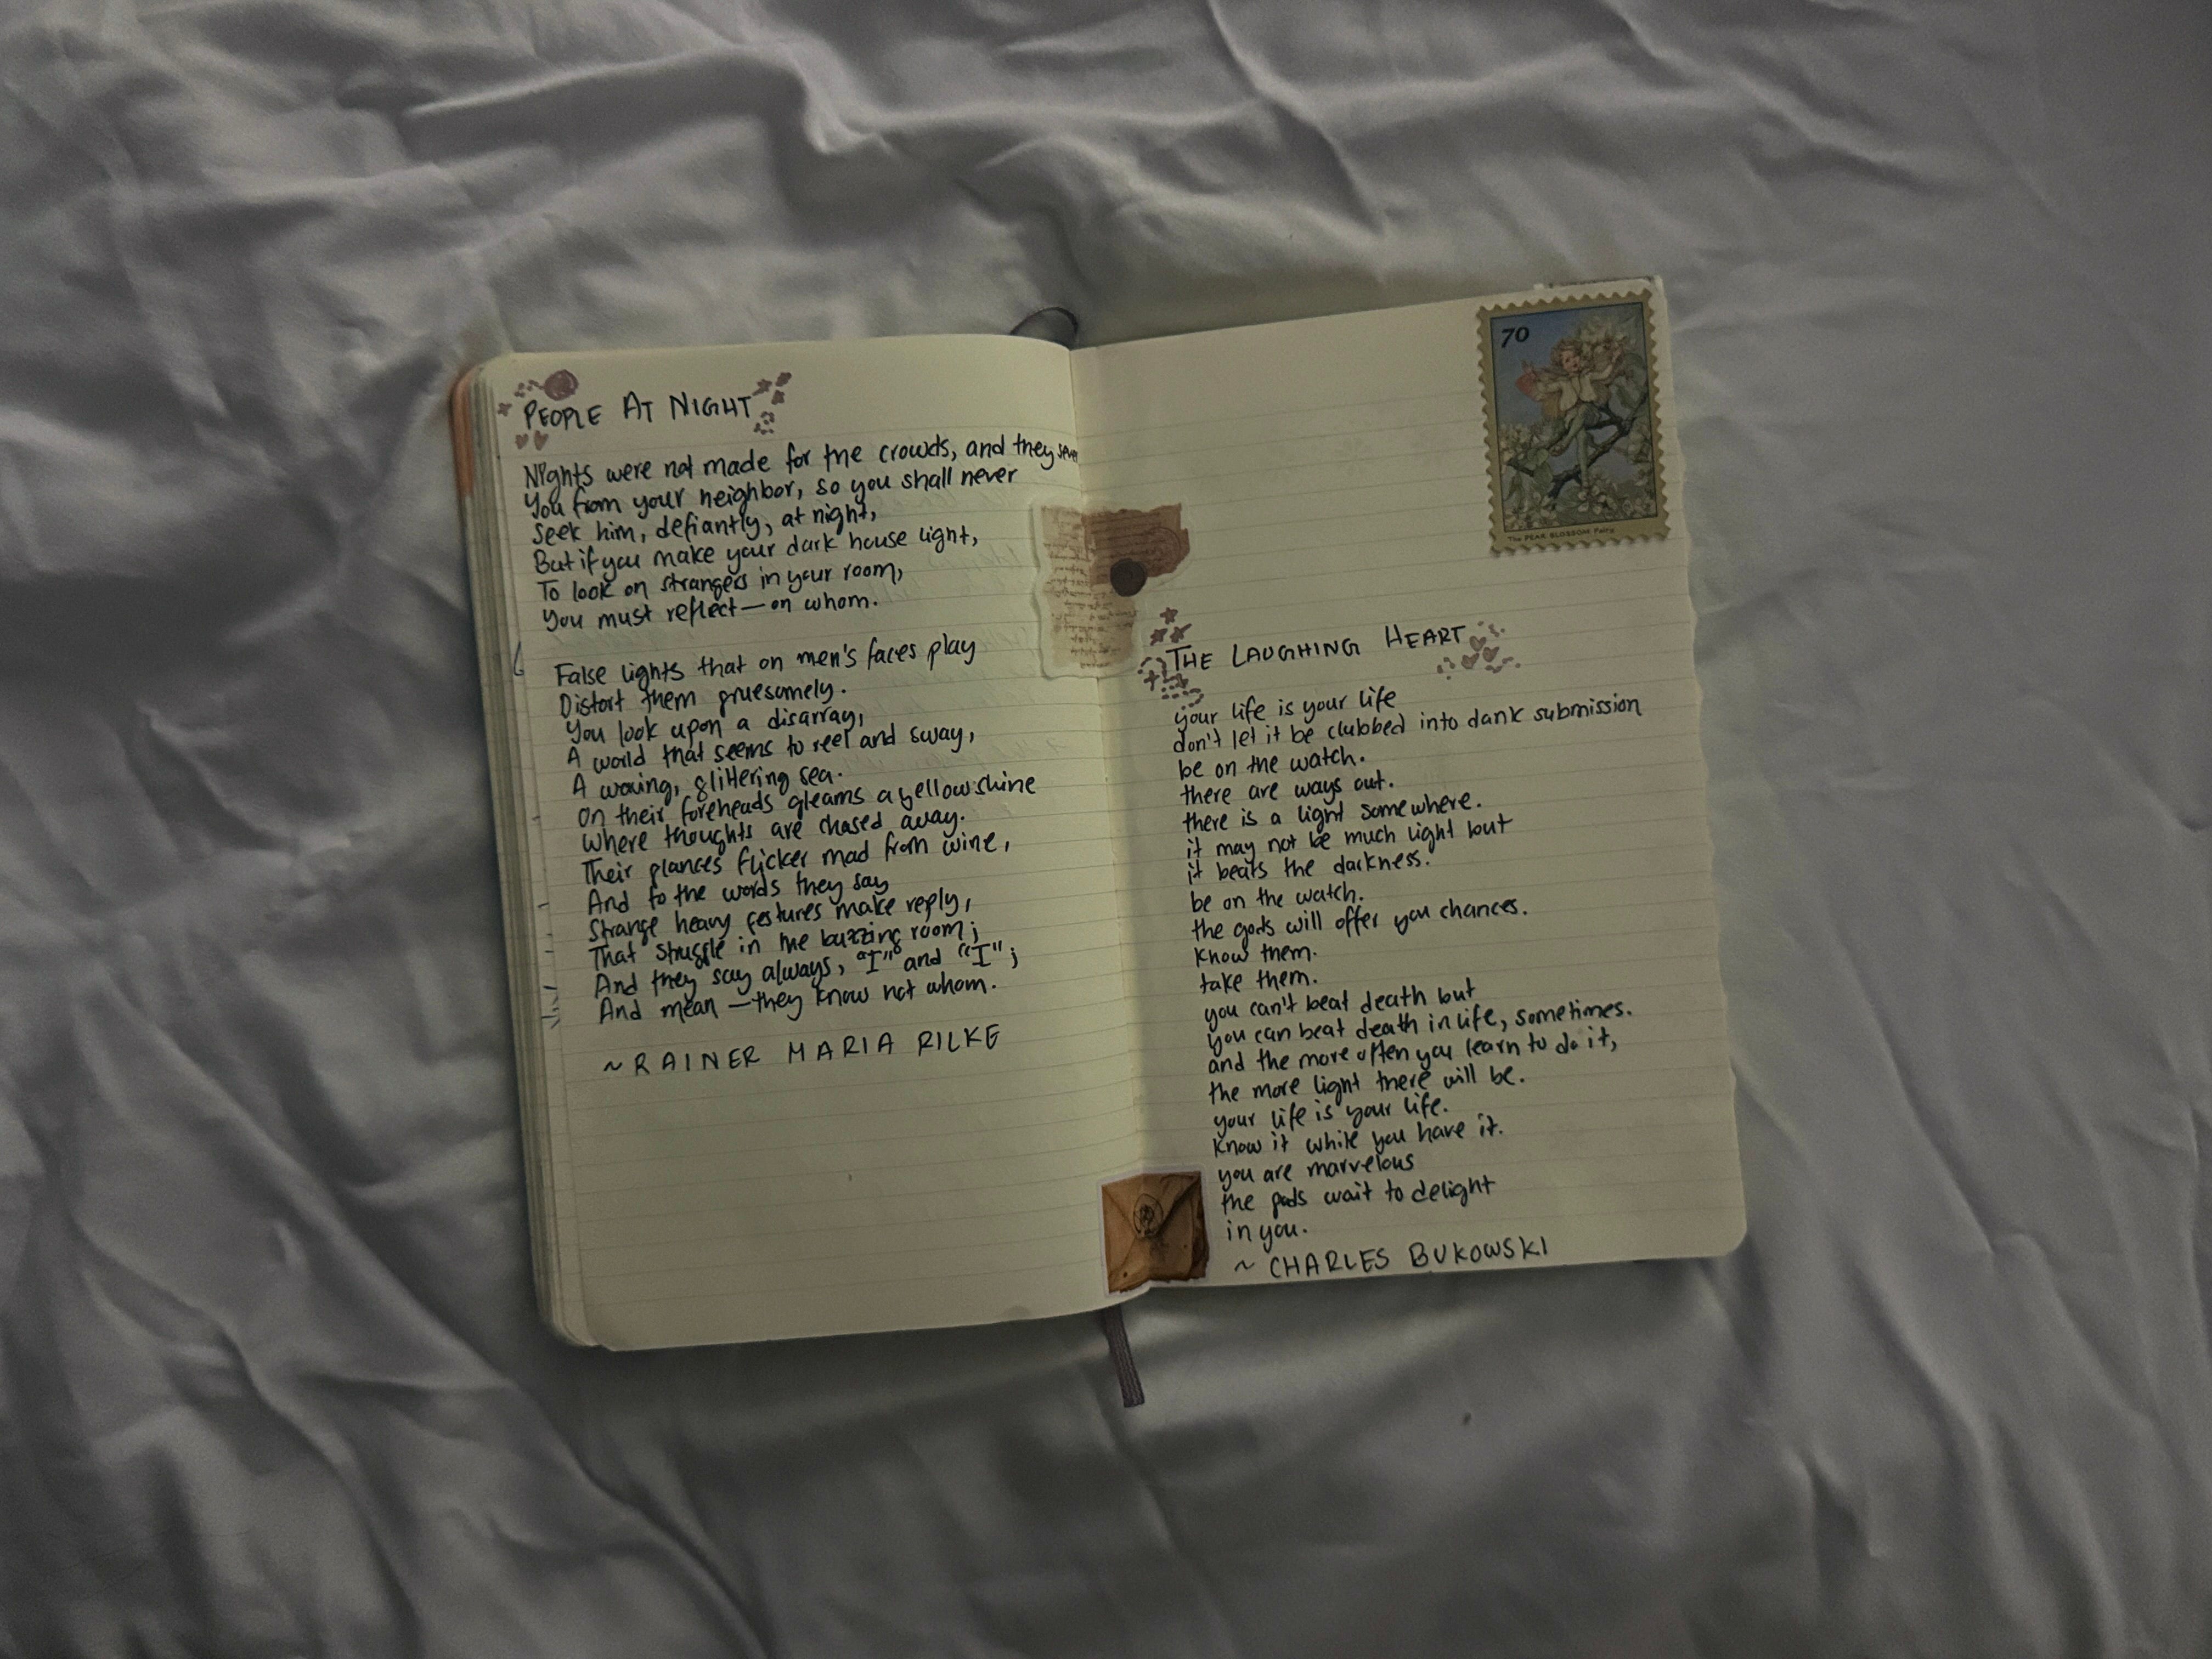 PEOPLE AT NIGHT
Nights were not made for the crowds, and they sever
You from your neighbor, so you shall never
Seek him, defiantly, at night,
But if you make your dark house light,
To look on strangers in your room,
You must reflect—on whom.
False lights that on men's faces play
Distort them gruesomely.
You look upon a disarray,
A world that seems to reel and sway,
A waving, glittering sea.
On their foreheads gleams a yellow shine
Where thoughts are chased away.
Their glances flicker mad from wine,
And to the words they say
Strange heavy gestures make reply,
That struggle in the buzzing room;
And they say always, "I" and "I";
And mean—they know not whom.
~RAINER MARIA RILKE
70
The PEAR BLOSSOM Fairy
THE LAUGHING HEART
your life is your life
don't let it be clubbed into dank submission
be on the watch.
there are ways out.
there is a light somewhere.
it may not be much light but
it beats the darkness.
be on the watch.
the gods will offer you chances.
know them.
take them.
you can't beat death but
you can beat death in life, sometimes.
and the more often you learn to do it,
the more light there will be.
your life is your life.
know it while you have it.
you are marvelous
the gods wait to delight
in you.
~ CHARLES BUKOWSKI